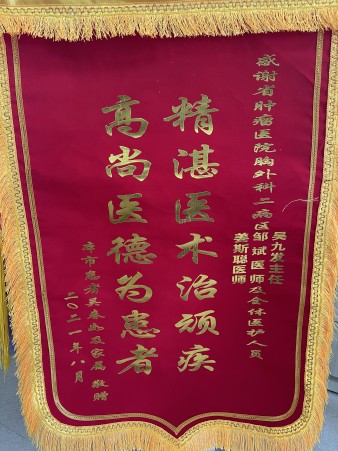 感谢省肿瘤医院胸外科二病区
吴九发主任
邹斌医师及全体医护人员
姜斯聪医师
精湛医术治顽疾
高尚医德为患者
市患者吴春及家属 敬赠
二〇二一年八月